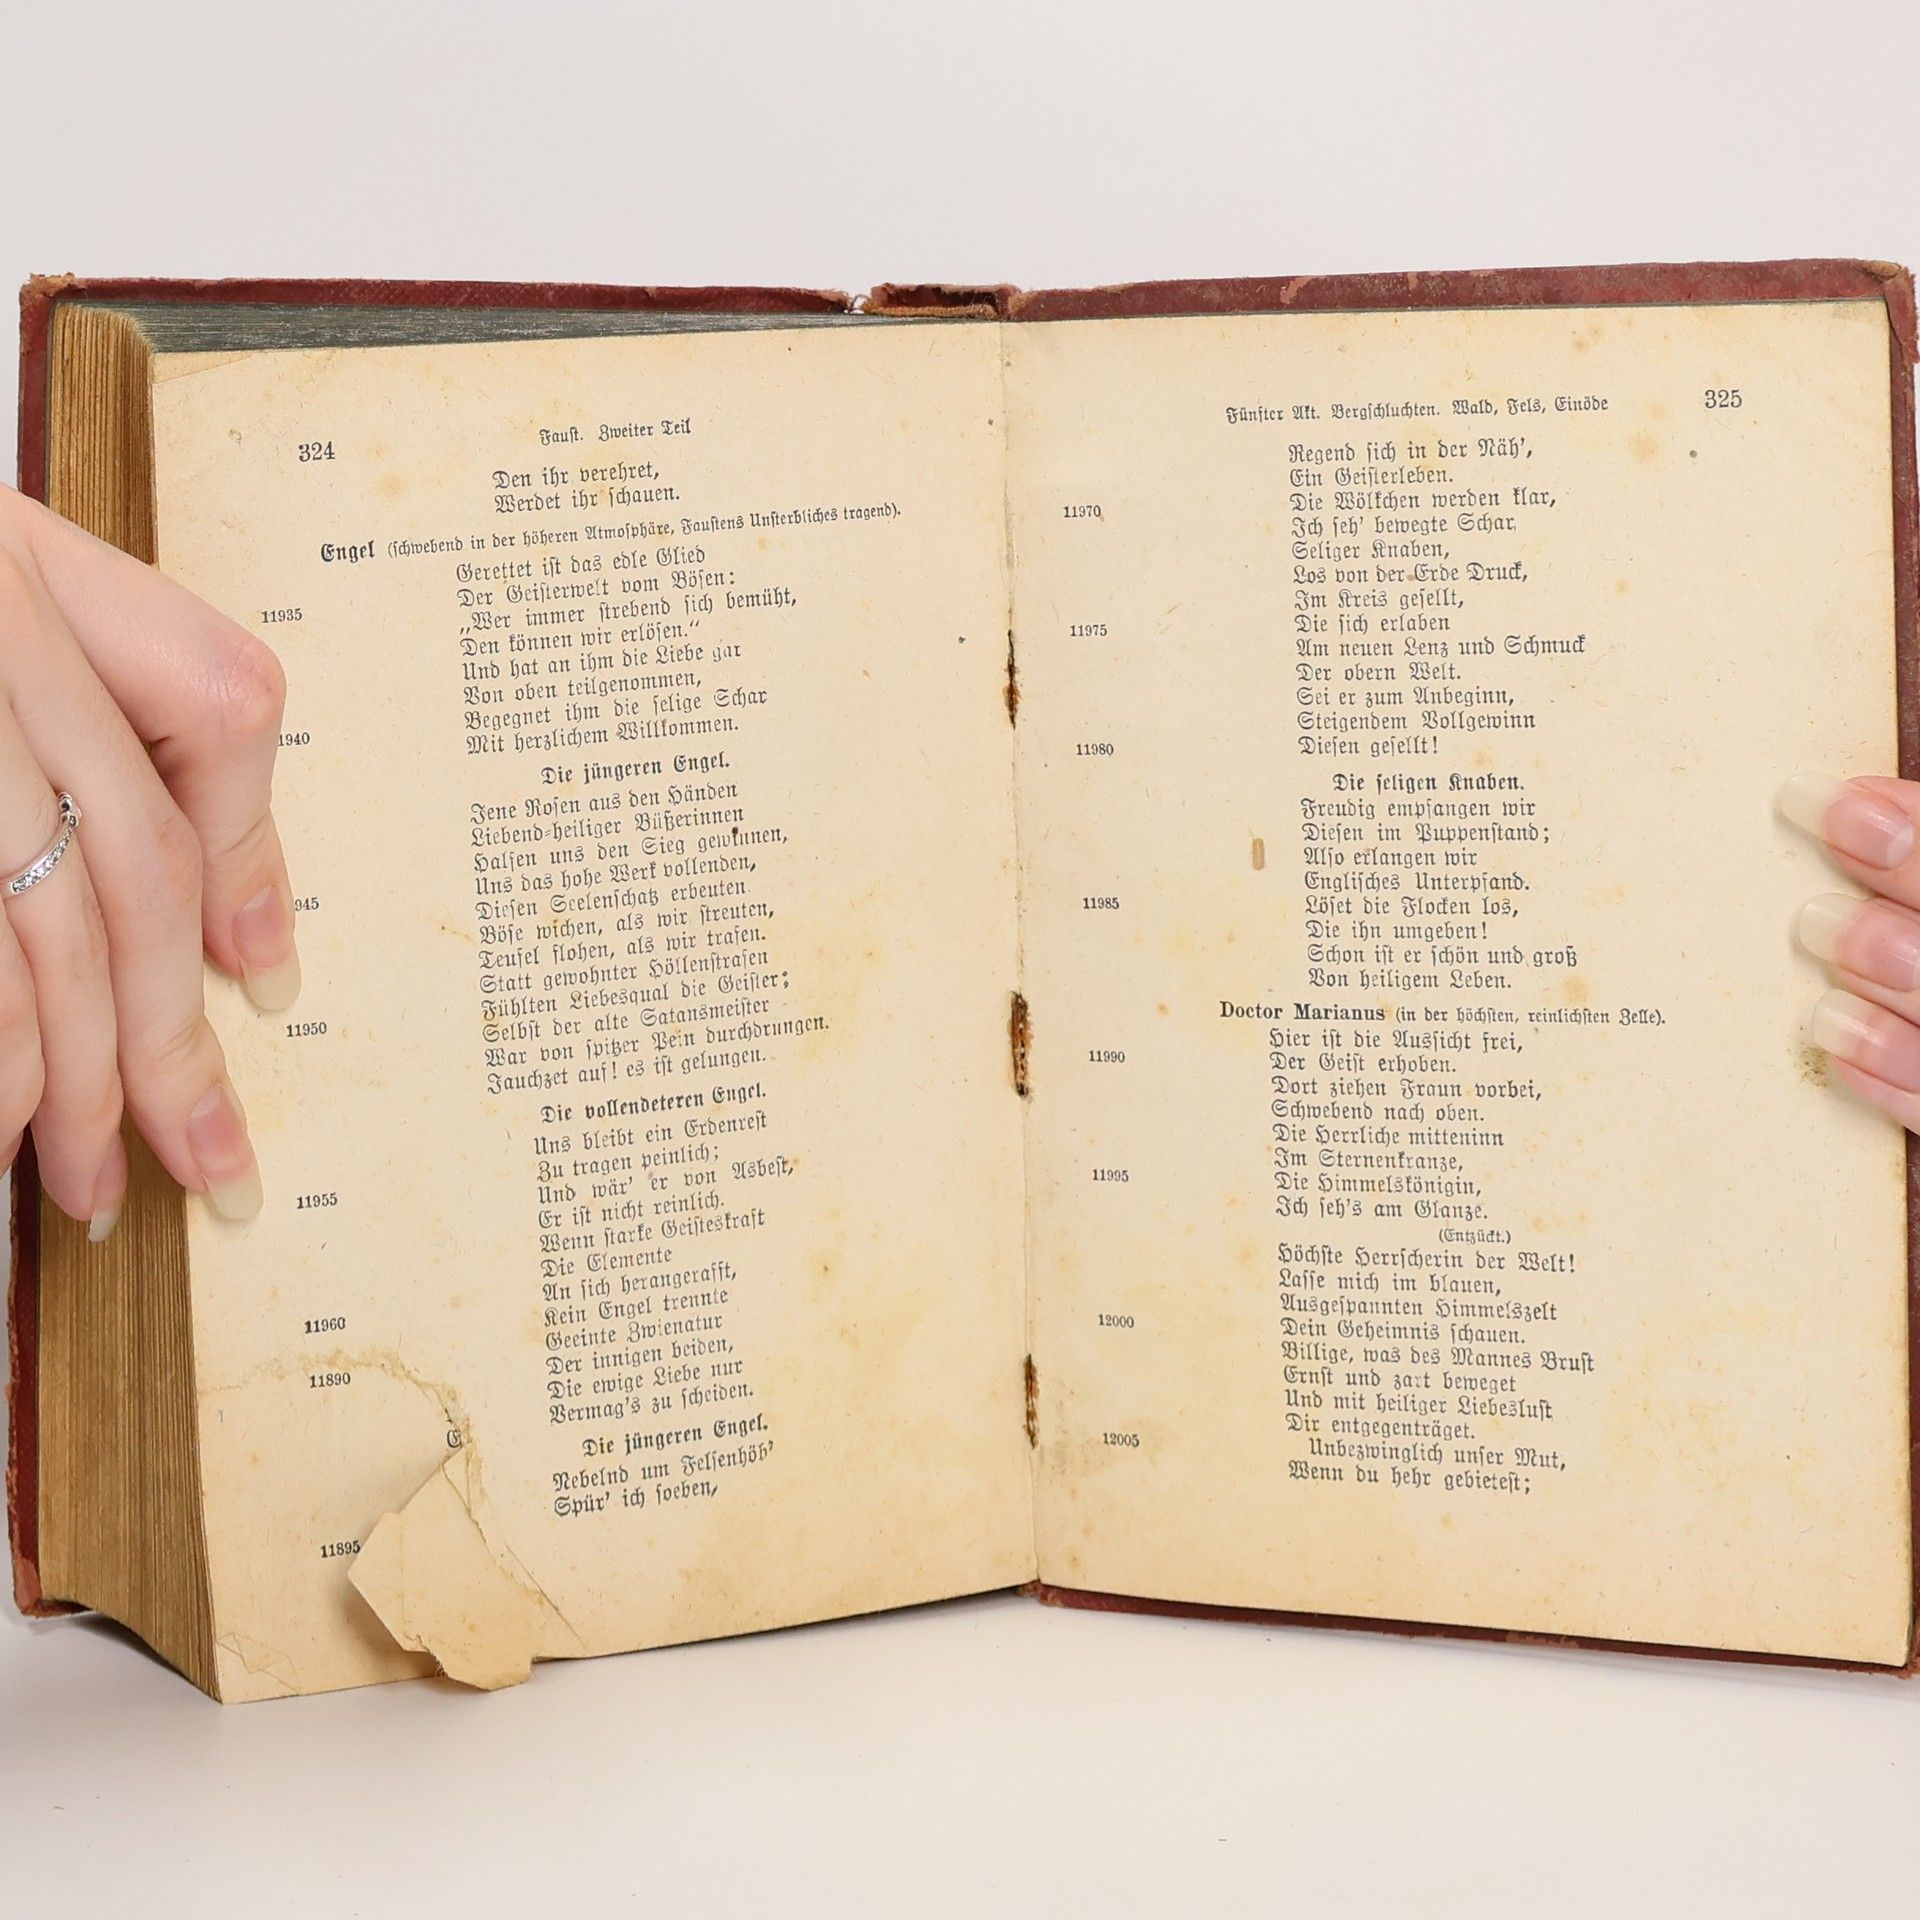 324
Faust. Zweiter Teil
Den ihr verehret,
Werdet ihr schauen.
Engel (schwebend in der höheren Atmosphäre, Faustens Unsterbliches tragend).
Gerettet ist das edle Glied
Der Geisterwelt vom Bösen:
11935 „Wer immer strebend sich bemüht,
Den können wir erlösen.“
Und hat an ihm die Liebe gar
Von oben teilgenommen,
Begegnet ihm die selige Schar
1940 Mit herzlichem Willkommen.
Die jüngeren Engel.
Jene Rosen aus den Händen
Liebend-heiliger Büßerinnen
Halfen uns den Sieg gewinnen,
Uns das hohe Werk vollenden,
945 Diesen Seelenschatz erbeuten.
Böse wichen, als wir streuten,
Teufel flohen, als wir trafen.
Statt gewohnter Höllenstrafen
Fühlten Liebesqual die Geister;
11950 Selbst der alte Satansmeister
War von spitzer Pein durchdrungen.
Jauchzet auf! es ist gelungen.
Die vollendeteren Engel.
Uns bleibt ein Erdenrest
Zu tragen peinlich;
11955 Und wär' er von Asbest,
Er ist nicht reinlich.
Wenn starke Geisteskraft
Die Elemente
An sich herangerafft,
11960 Kein Engel trennte
Geeinte Zwienatur
Der innigen beiden,
11890
Die ewige Liebe nur
Vermag's zu scheiden.
E
Die jüngeren Engel.
Nebelnd um Felsenhöh'
Spür' ich soeben,
11895
Fünfter Akt. Bergschluchten. Wald, Fels, Einöde
325
Regend sich in der Näh',
Ein Geisterleben.
11970 Die Wölkchen werden klar,
Ich seh' bewegte Schar
Seliger Knaben,
Los von der Erde Druck,
Im Kreis gesellt,
11975 Die sich erlaben
Am neuen Lenz und Schmuck
Der obern Welt.
Sei er zum Anbeginn,
Steigendem Vollgewinn
11980 Diesen gesellt!
Die seligen Knaben.
Freudig empfangen wir
Diesen im Puppenstand;
Also erlangen wir
Englisches Unterpfand.
11985 Löset die Flocken los,
Die ihn umgeben!
Schon ist er schön und groß
Von heiligem Leben.
Doctor Marianus (in der höchsten, reinlichsten Zelle).
Hier ist die Aussicht frei,
11990 Der Geist erhoben.
Dort ziehen Fraun vorbei,
Schwebend nach oben.
Die Herrliche mitteninn
Im Sternenkranze,
11995 Die Himmelskönigin,
Ich seh's am Glanze.
(Entzückt.)
Höchste Herrscherin der Welt!
Lasse mich im blauen,
Ausgespannten Himmelszelt
12000 Dein Geheimnis schauen.
Billige, was des Mannes Brust
Ernst und zart beweget
Und mit heiliger Liebeslust
Dir entgegenträget.
12005 Unbezwinglich unser Mut,
Wenn du hehr gebietest;